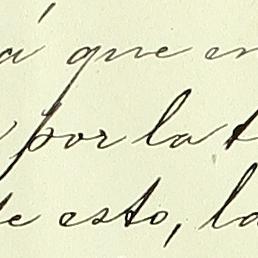 á que en
por la t
te esto, la